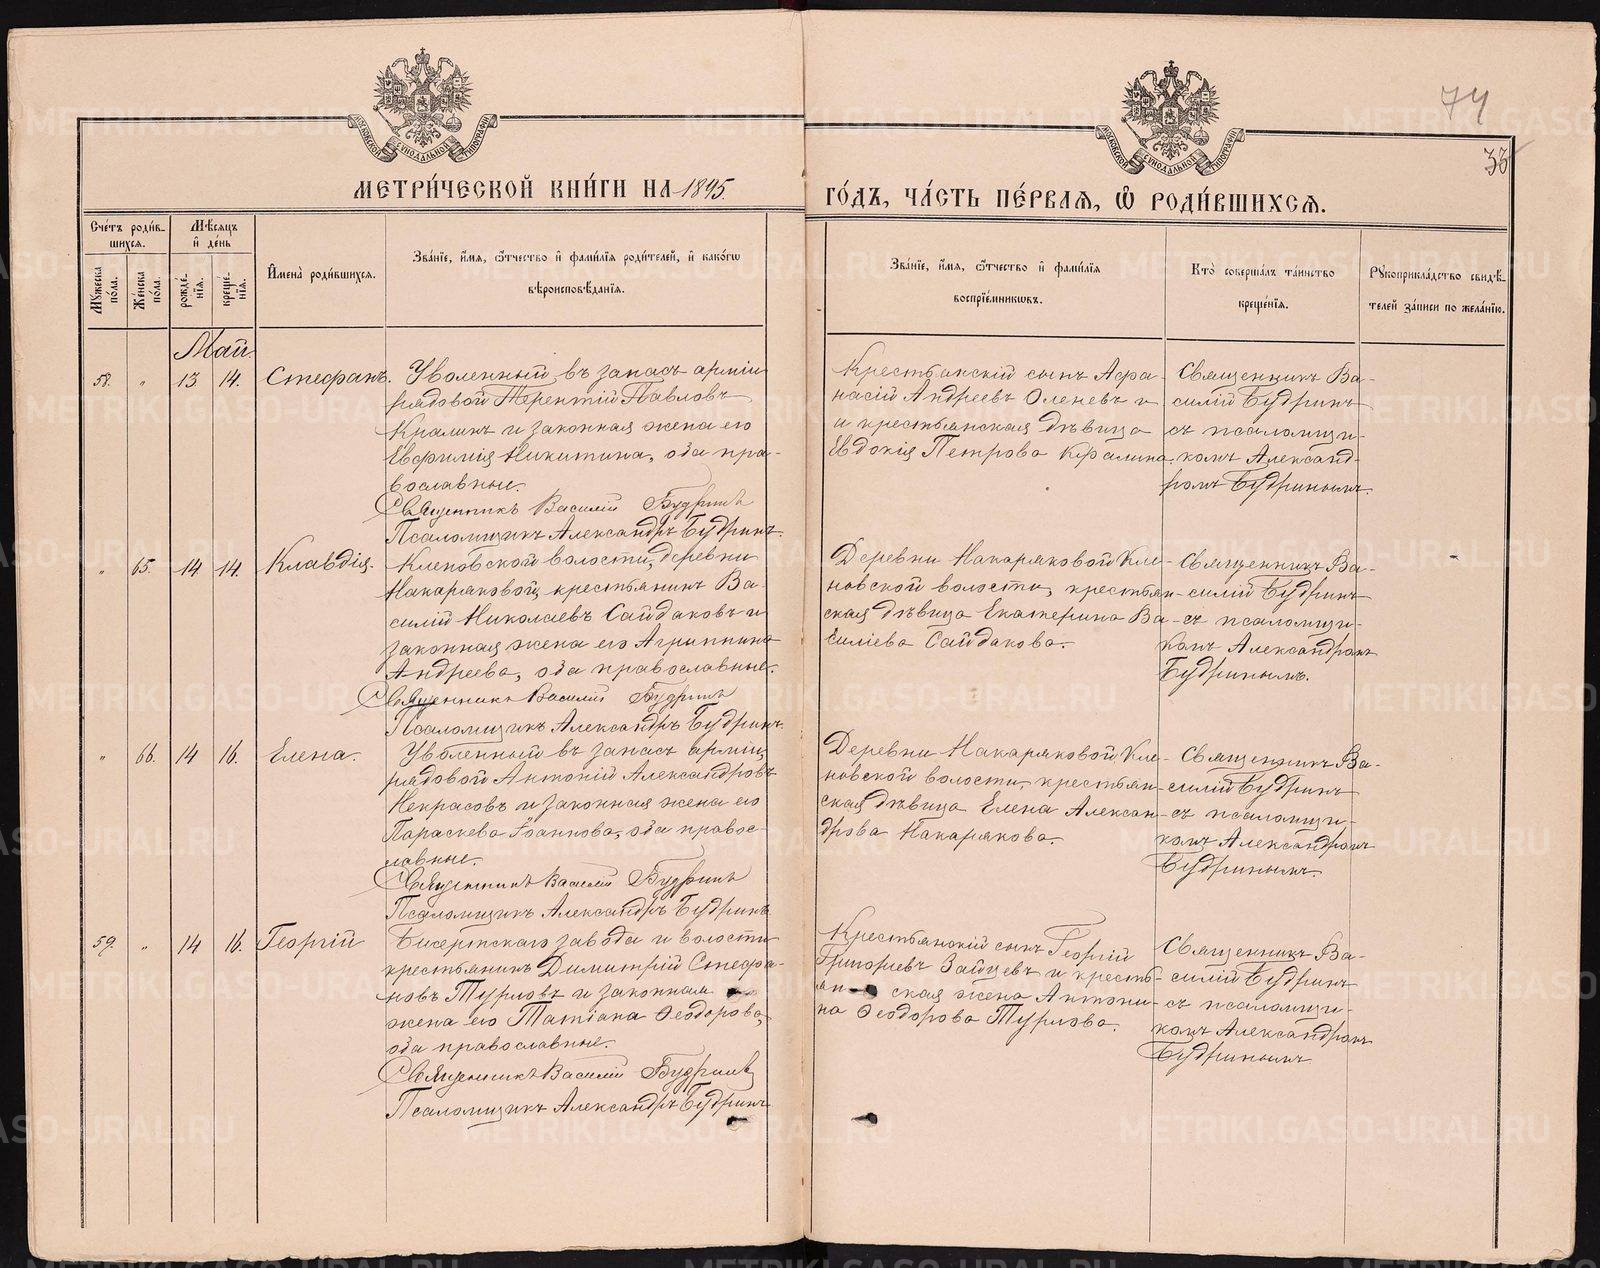 74
33
МОСКОВСКОЙ СѴНОДАЛЬНОЙ ТИПОГРАФІИ
МОСКОВСКОЙ СѴНОДАЛЬНОЙ ТИПОГРАФІИ
МЕТРИ́ЧЕСКОЙ КНИ́ГИ НА 1895.
ГО́ДЪ, ЧА́СТЬ ПЕ́РВАѦ, Ѽ РОДИ́ВШИХСѦ.
Сче́тъ роди́в-
шихся.
Мѣ́сяцъ
и де́нь
Му́жеска по́ла.
Же́нска по́ла.
рожде́-
нїя.
креще́-
нїя.
И҆мена̀ роди́вшихся.
Зва́нїе, и҆́мя, ѻ҆́тчество и҆ фами́лїя роди́телей, и҆ како́гѡ
вѣроисповѣ́данїя.
Зва́нїе, и҆́мя, ѻ҆́тчество и҆ фами́лїя
воспрїе́мникѡвъ.
Кто̀ соверша́лъ та́инство
креще́нїя.
Рукоприкла́дство свидѣ́-
телей за́писи по жела́нїю.
Май.
58. " 13 14. Стефанъ.
Уволенный въ запасъ арміи
рядовой Терентій Павловъ
Кралинъ и законная жена его
Евфимія Никитина, оба пра-
вославные.
Священникъ Василій Будринъ
Псаломщикъ Александръ Будринъ.
Крестьянскій сынъ Афа-
насій Андреевъ Оленевъ и
и крестьянская дѣвица
Евдокія Петрова Кралина.
Священникъ Ва-
силій Будринъ
съ псаломщи-
комъ Александ-
ромъ Будринымъ.
" 65. 14 14. Клавдія.
Кленовской волости, деревни
Накаряковой, крестьянинъ Ва-
силій Николаевъ Сайдаковъ и
законная жена его Агриппина
Андреева, оба православные.
Священникъ Василій Будринъ
Псаломщикъ Александръ Будринъ.
Деревни Накаряковой Кле-
новской волости, крестьян-
ская дѣвица Екатерина Ва-
силіева Сайдакова.
Священникъ Ва-
силій Будринъ
съ псаломщи-
комъ Александромъ
Будринымъ.
" 66. 14 16. Елена.
Уволенный въ запасъ арміи,
рядовой Антоній Александровъ
Некрасовъ и законная жена его
Параскева Іоаннова, оба правос-
лавные.
Священникъ Василій Будринъ
Псаломщикъ Александръ Будринъ.
Деревни Накаряковой Кле-
новской волости, крестьян-
ская дѣвица Елена Алексан-
дрова Накарякова.
Священникъ Ва-
силій Будринъ
съ псаломщи-
комъ Александромъ
Будринымъ.
59. " 14 16. Георгій
Бисертскаго завода и волости
крестьянинъ Димитрій Стефа-
новъ Турловъ и законная
жена его Татіана Ѳеодорова,
оба православные.
Священникъ Василій Будринъ
Псаломщикъ Александръ Будринъ
Крестьянскій сынъ Георгій
Григорьевъ Зайцевъ и кресть-
янская жена Антони-
на Ѳеодорова Турлова.
Священникъ Ва-
силій Будринъ
съ псаломщи-
комъ Александромъ
Будринымъ
METRIKI.GASO-URAL.RU